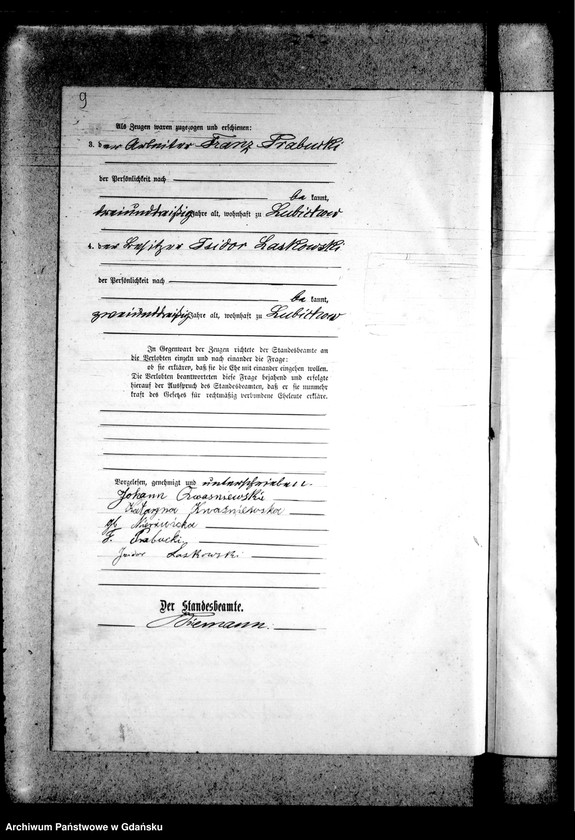 9
Als Zeugen waren zugezogen und erschienen:
3. der Arbeiter Franz Trabucki
der Persönlichkeit nach
be kannt,
dreiunddreißig Jahre alt, wohnhaft zu Lubichow
4. der Besitzer Isidor Laskowski
der Persönlichkeit nach
be kannt,
zweiunddreißig Jahre alt, wohnhaft zu Lubichow
In Gegenwart der Zeugen richtete der Standesbeamte an
die Verlobten einzeln und nach einander die Frage:
ob sie erklären, daß sie die Ehe mit einander eingehen wollen.
Die Verlobten beantworteten diese Frage bejahend und erfolgte
hierauf der Ausspruch des Standesbeamten, daß er sie nunmehr
kraft des Gesetzes für rechtmäßig verbundene Eheleute erkläre.
Vorgelesen, genehmigt und unterschrieben.
Johann Kwaśniewski
Katarzyna Kwaśniewska
F. Trabucki
Isidor Laskowski
Der Standesbeamte.
Archiwum Państwowe w Gdańsku